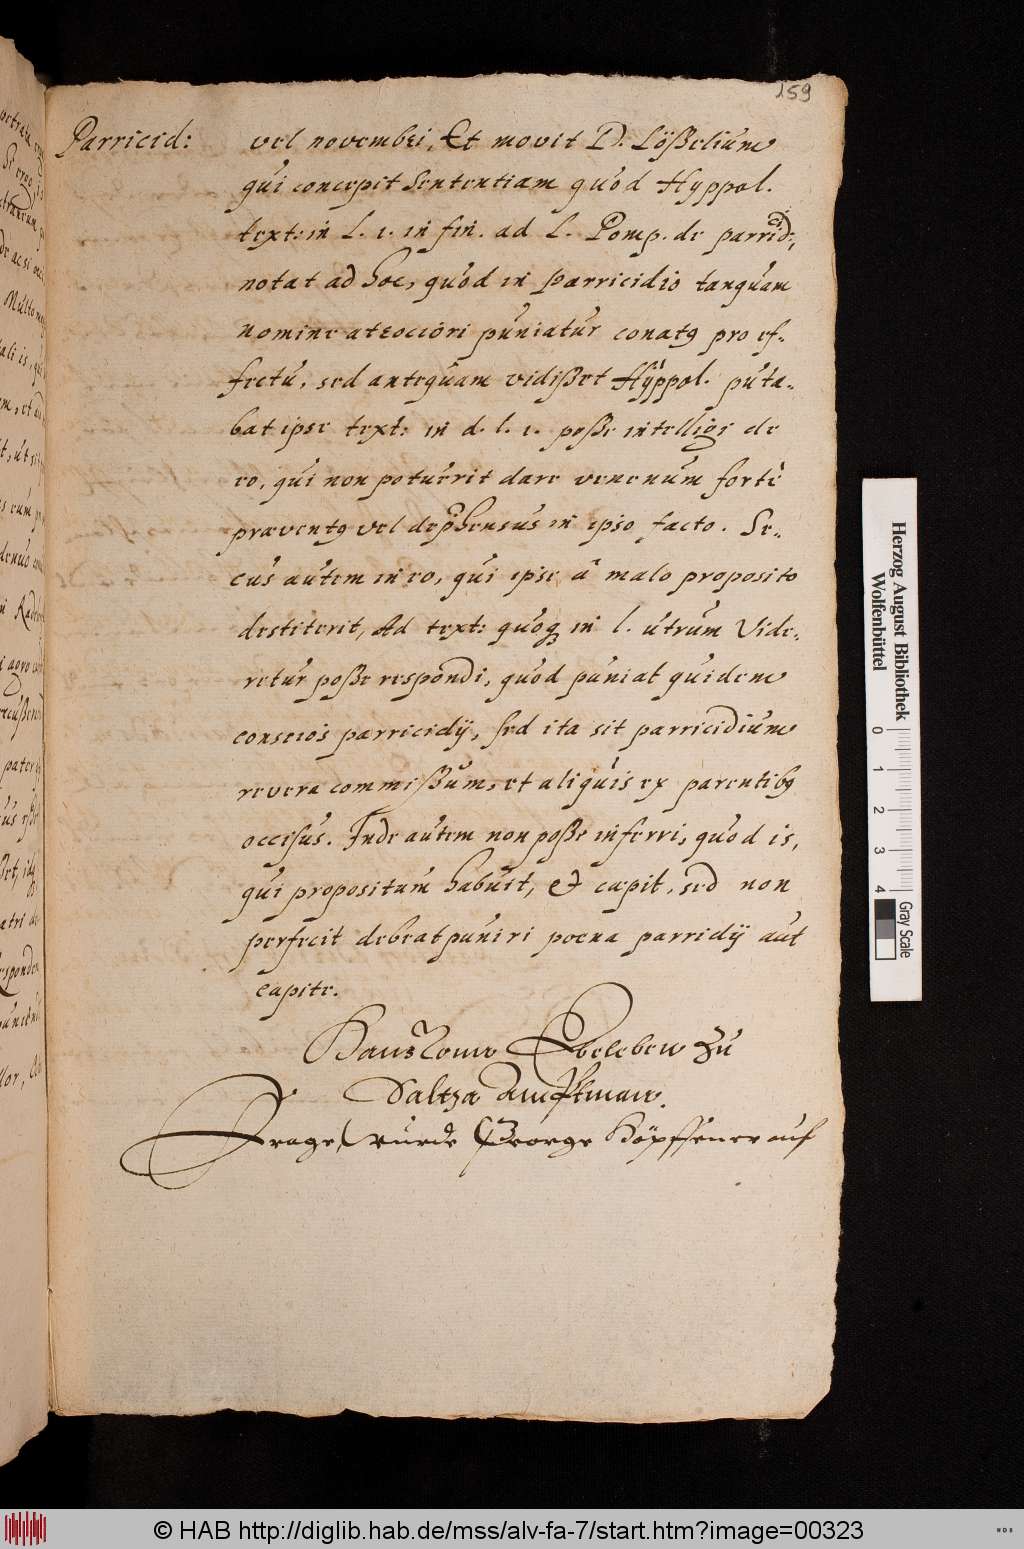 159
Parricid:
vel novembri, Et movit D. Lößelium
qui concepit sententiam quod Hyppol.
text: in l. 1. in fin. ad L. Pomp. de parricid:,
notat ad hoc, quod in parricidio tanquam
nomine atrociori puniatur conatꝰ pro ef-
fectu, sed antequam vidißet Hyppol. puta-
bat ipse text: in d. l. 1. poße intelligi de
eo, qui non potuerit dare venenum fortè
præventꝰ vel deprehensus in ipso facto. Se-
cus autem in eo, qui ipse à malo proposito
destiterit, Ad text: quoqꝫ in l. utrum Vide-
retur poße respondi, quod puniat quidem
conscios parricidij, sed ita sit parricidium
revera commißum, et aliquis ex parentibꝰ
occisus. Inde autem non poße inferri, quod is,
qui propositum habuit, et cœpit, sed non
perfecit debeat puniri poena parridij aut
capite.
Hans vonn Ebelebenn zu
Saltza Ambtman.
Frage, wurde George Höpffener auf
Herzog August Bibliothek
Wolfenbüttel
0 1 2 3 4
Gray Scale
© HAB http://diglib.hab.de/mss/alv-fa-7/start.htm?image=00323